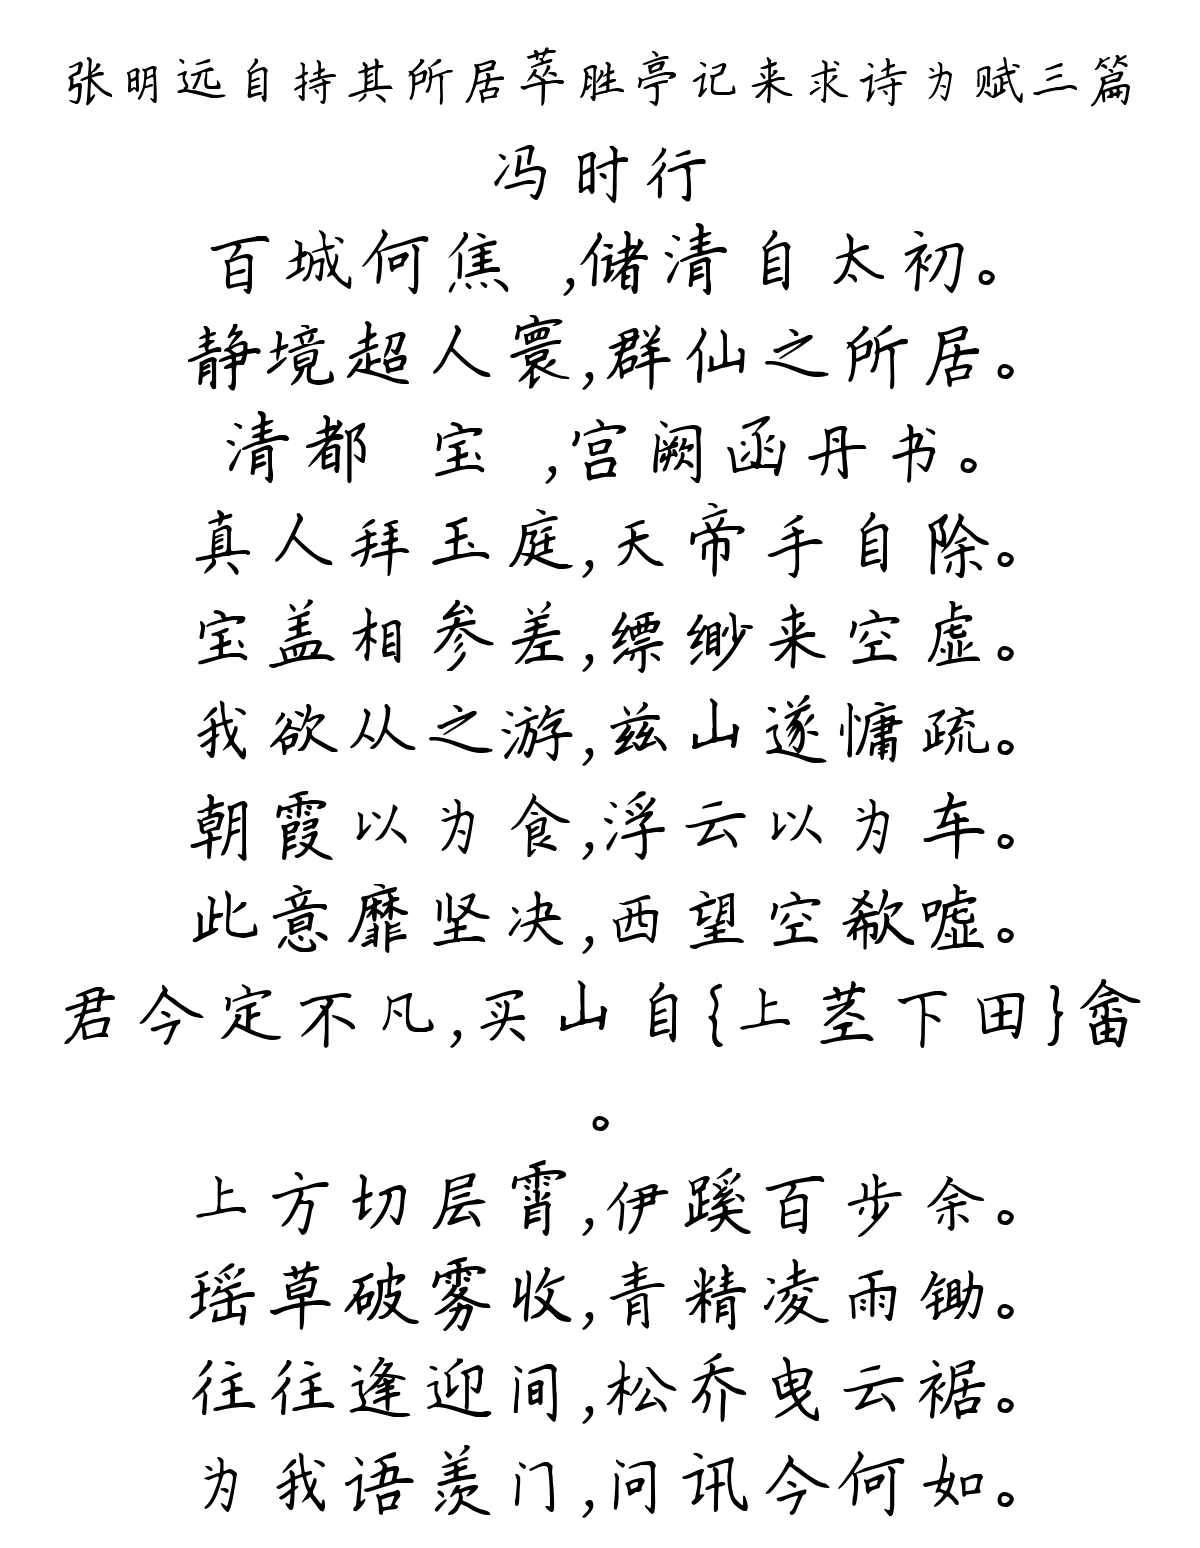 张明远自持其所居萃胜亭记来求诗为赋三篇
冯时行
百城何焦 ,储清自太初。
静境超人寰,群仙之所居。
清都 宝 ,宫阙函丹书。
真人拜玉庭,天帝手自除。
宝盖相参差,缥缈来空虚。
我欲从之游,兹山遂慵疏。
朝霞以为食,浮云以为车。
此意靡坚决,西望空欷嘘。
君今定不凡,买山自{上茎下田}畲
。
上方切层霄,伊蹊百步余。
瑶草破雾收,青精凌雨锄。
往往逢迎间,松乔曳云裾。
为我语羡门,问讯今何如。